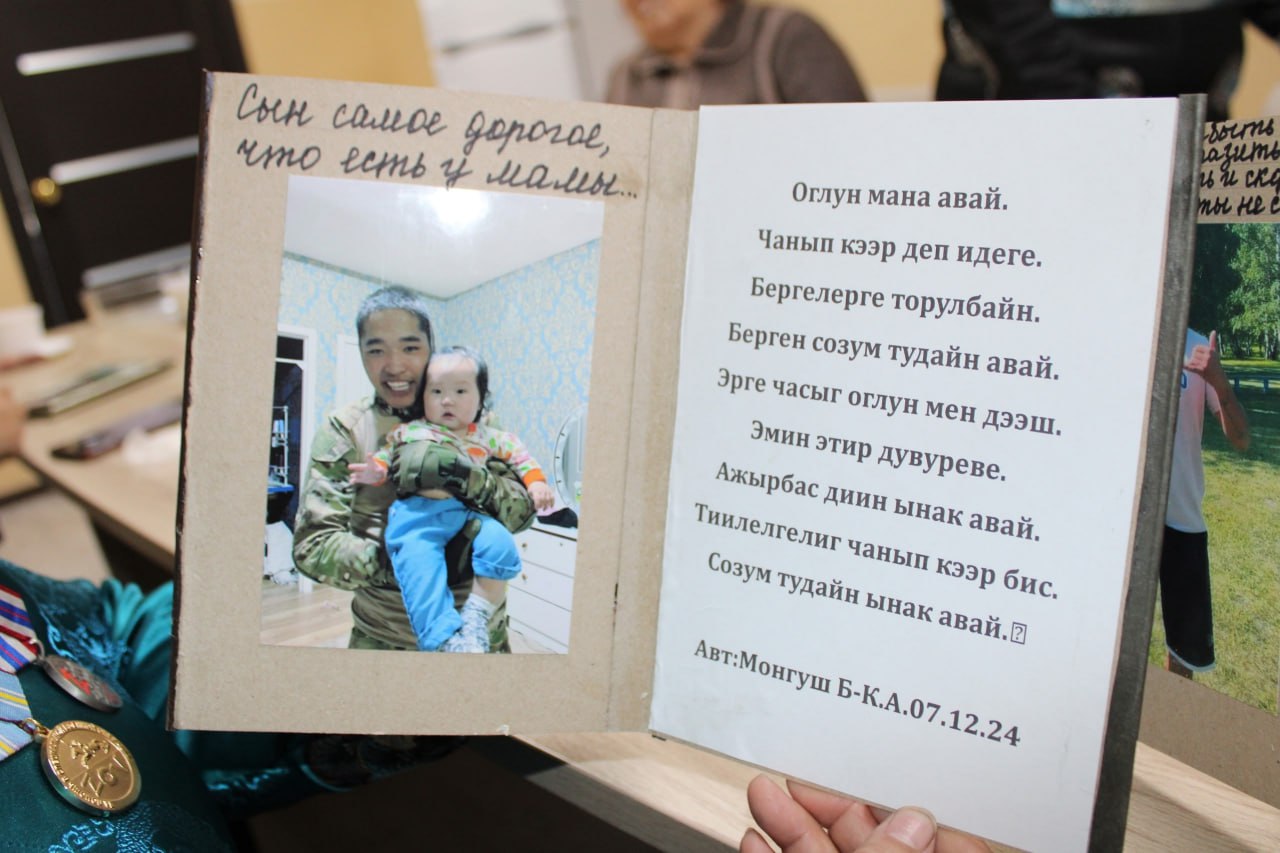 Сын самое дорогое,
что есть у мамы...
Оглун мана авай.
Чанып кээр деп идеге.
Бергелерге торулбайн.
Берген созум тудайн авай.
Эрге часыг оглун мен дээш.
Эмин этир дувуреве.
Ажырбас диин ынак авай.
Тиилелгелиг чанып кээр бис.
Созум тудайн ынак авай.
Авт:Монгуш Б-К.А.07.12.24
и
не